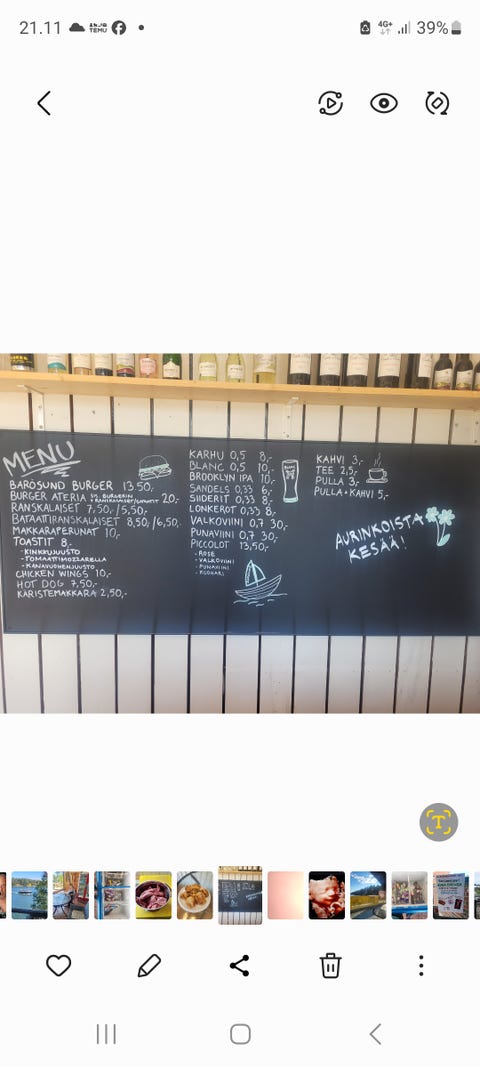 21.11
4G+
39%
MENU
BARÖSUND BURGER 13.50,-
BURGER ATERIA SIS. BURGERIN + RANSKALAISET/DIPIT 20,-
RANSKALAISET 7,50,-/5,50,-
BATAATTIRANSKALAISET 8,50,-/6,50,-
MAKKARAPERUNAT 10,-
TOASTIT 8,-
- KINKKUJUUSTO
- TOMAATTIMOZZARELLA
- KANAVUOHENJUUSTO
CHICKEN WINGS 10,-
HOT DOG 7,50,-
KÄRISTEMAKKARA 2,50,-
KARHU 0,5 8,-
BLANC 0,5 10,-
BROOKLYN IPA 10,-
SANDELS 0,33 6,-
SIIDERIT 0,33 8,-
LONKEROT 0,33 8,-
VALKOVIINI 0,7 30,-
PUNAVIINI 0,7 30,-
PICCOLOT 13,50,-
- ROSE
- VALKOVIINI
- PUNAVIINI
- KUOHARI
KAHVI 3,-
TEE 2,5,-
PULLA 3,-
PULLA+KAHVI 5,-
AURINKOISTA
KESÄÄ!